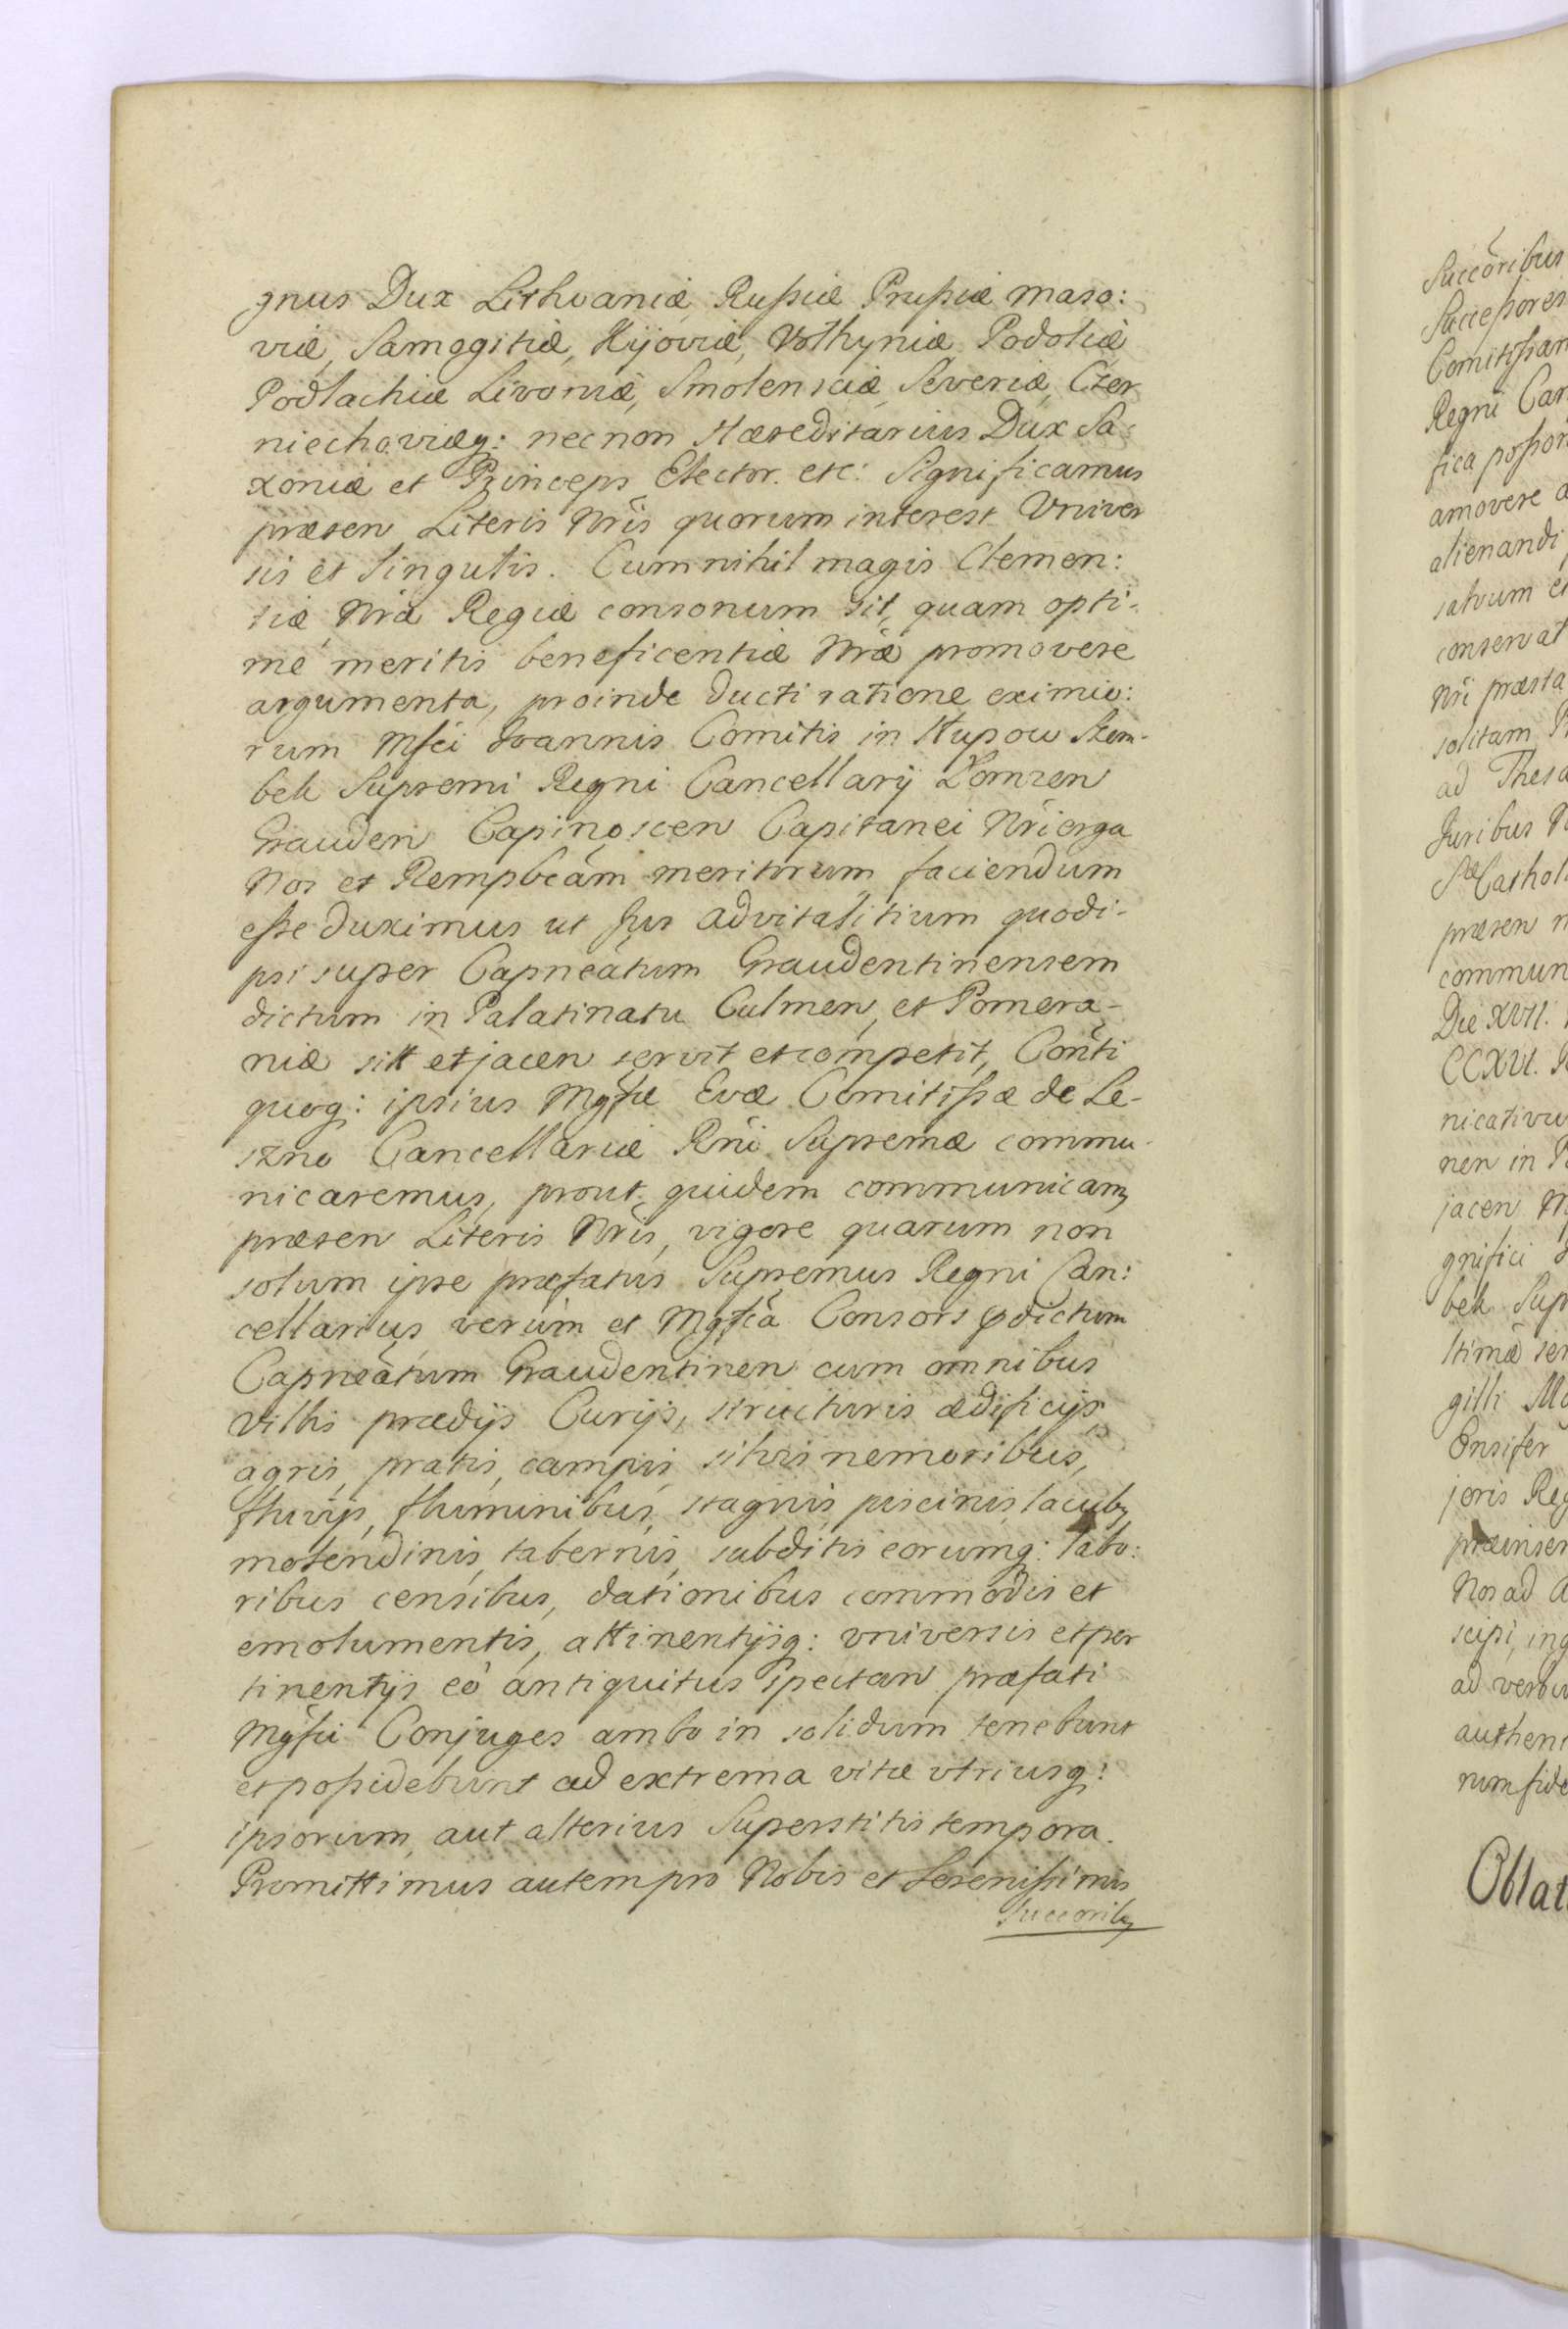 gnus Dux Lithvaniæ, Russiæ Prussiæ maso:
viæ, Samogitiæ, Kijoviæ, Volhyniæ Podoliæ
Podlachiæ Livoniæ, Smolensciæ Severiæ, Czer
niechoviæq: necnon Hæreditarius Dux Sa:
xoniæ et Princeps Elector. etc: Significamus
præsen Literis Nris quorum interest Vniver
sis et singulis. Cum nihil magis Clemen:
tiæ Nræ Regiæ consonum sit, quam opti-
me meritis beneficentiæ Nræ promovere
argumenta, proinde ducti ratione eximio:
rum Mfci Joannis Comitis in Słupow Szem-
bek Supremi Regni Cancellarij Łomzen
Grauden Capinoscen Capitanei Nri erga
Nos et Rempbcam meritorum faciendum
esse duximus ut Jus advitalitium quodi-
psi super Capneatum Graudentinensem
dictum in Palatinatu Culmen, et Pomera-
niæ sitt et jacen servit et competit, Conti
quoq: ipsius Mgfcæ Evæ Comitissæ de Le-
szno Cancellariæ Rni Supremæ commu
nicaremus, prout quidem communicamq
præsen Literis Nris, vigore quarum non
solum ipse præfatus Supremus Regni Can:
cellarius verum et Mgfca Consors pdictum
Capneatum Graudentinen cum omnibus
Villis prædijs Curijs, structuris ædificijs
agris, pratis, campis silvis nemoribus,
fluvijs, fluminibus, stagnis piscinis, lacubq
molendinis, tabernis, subditis eorumq: labo:
ribus censibus, dationibus commodis et
emolumentis, attinentijsq: vniversis et per
tinentijs eo antiquitus spectan præfati
Mgfci Conjuges ambo in solidum tenebunt
et possidebunt ad extrema vitæ vtriusq:
ipsorum, aut alterius Superstitis tempora.
Promittimus autem pro Nobis et Serenissimis
Succoribq
Succoribus
Successores
Comitissam
Regni Can
fica posson
amovere a
alienandi
salvum et
conservat
Nri præsta
solitam
ad Thesa
Juribus
Cathol
præsen n
commun
Die XVII.
CCXVI.
nicativu
nen in
jacen
gnifici
bek Sup
stimæ ser
gilli
Ensifer
joris Reg
præinser
Nos ad
scipi, ing
ad verbu
authent
rum fide
Oblat